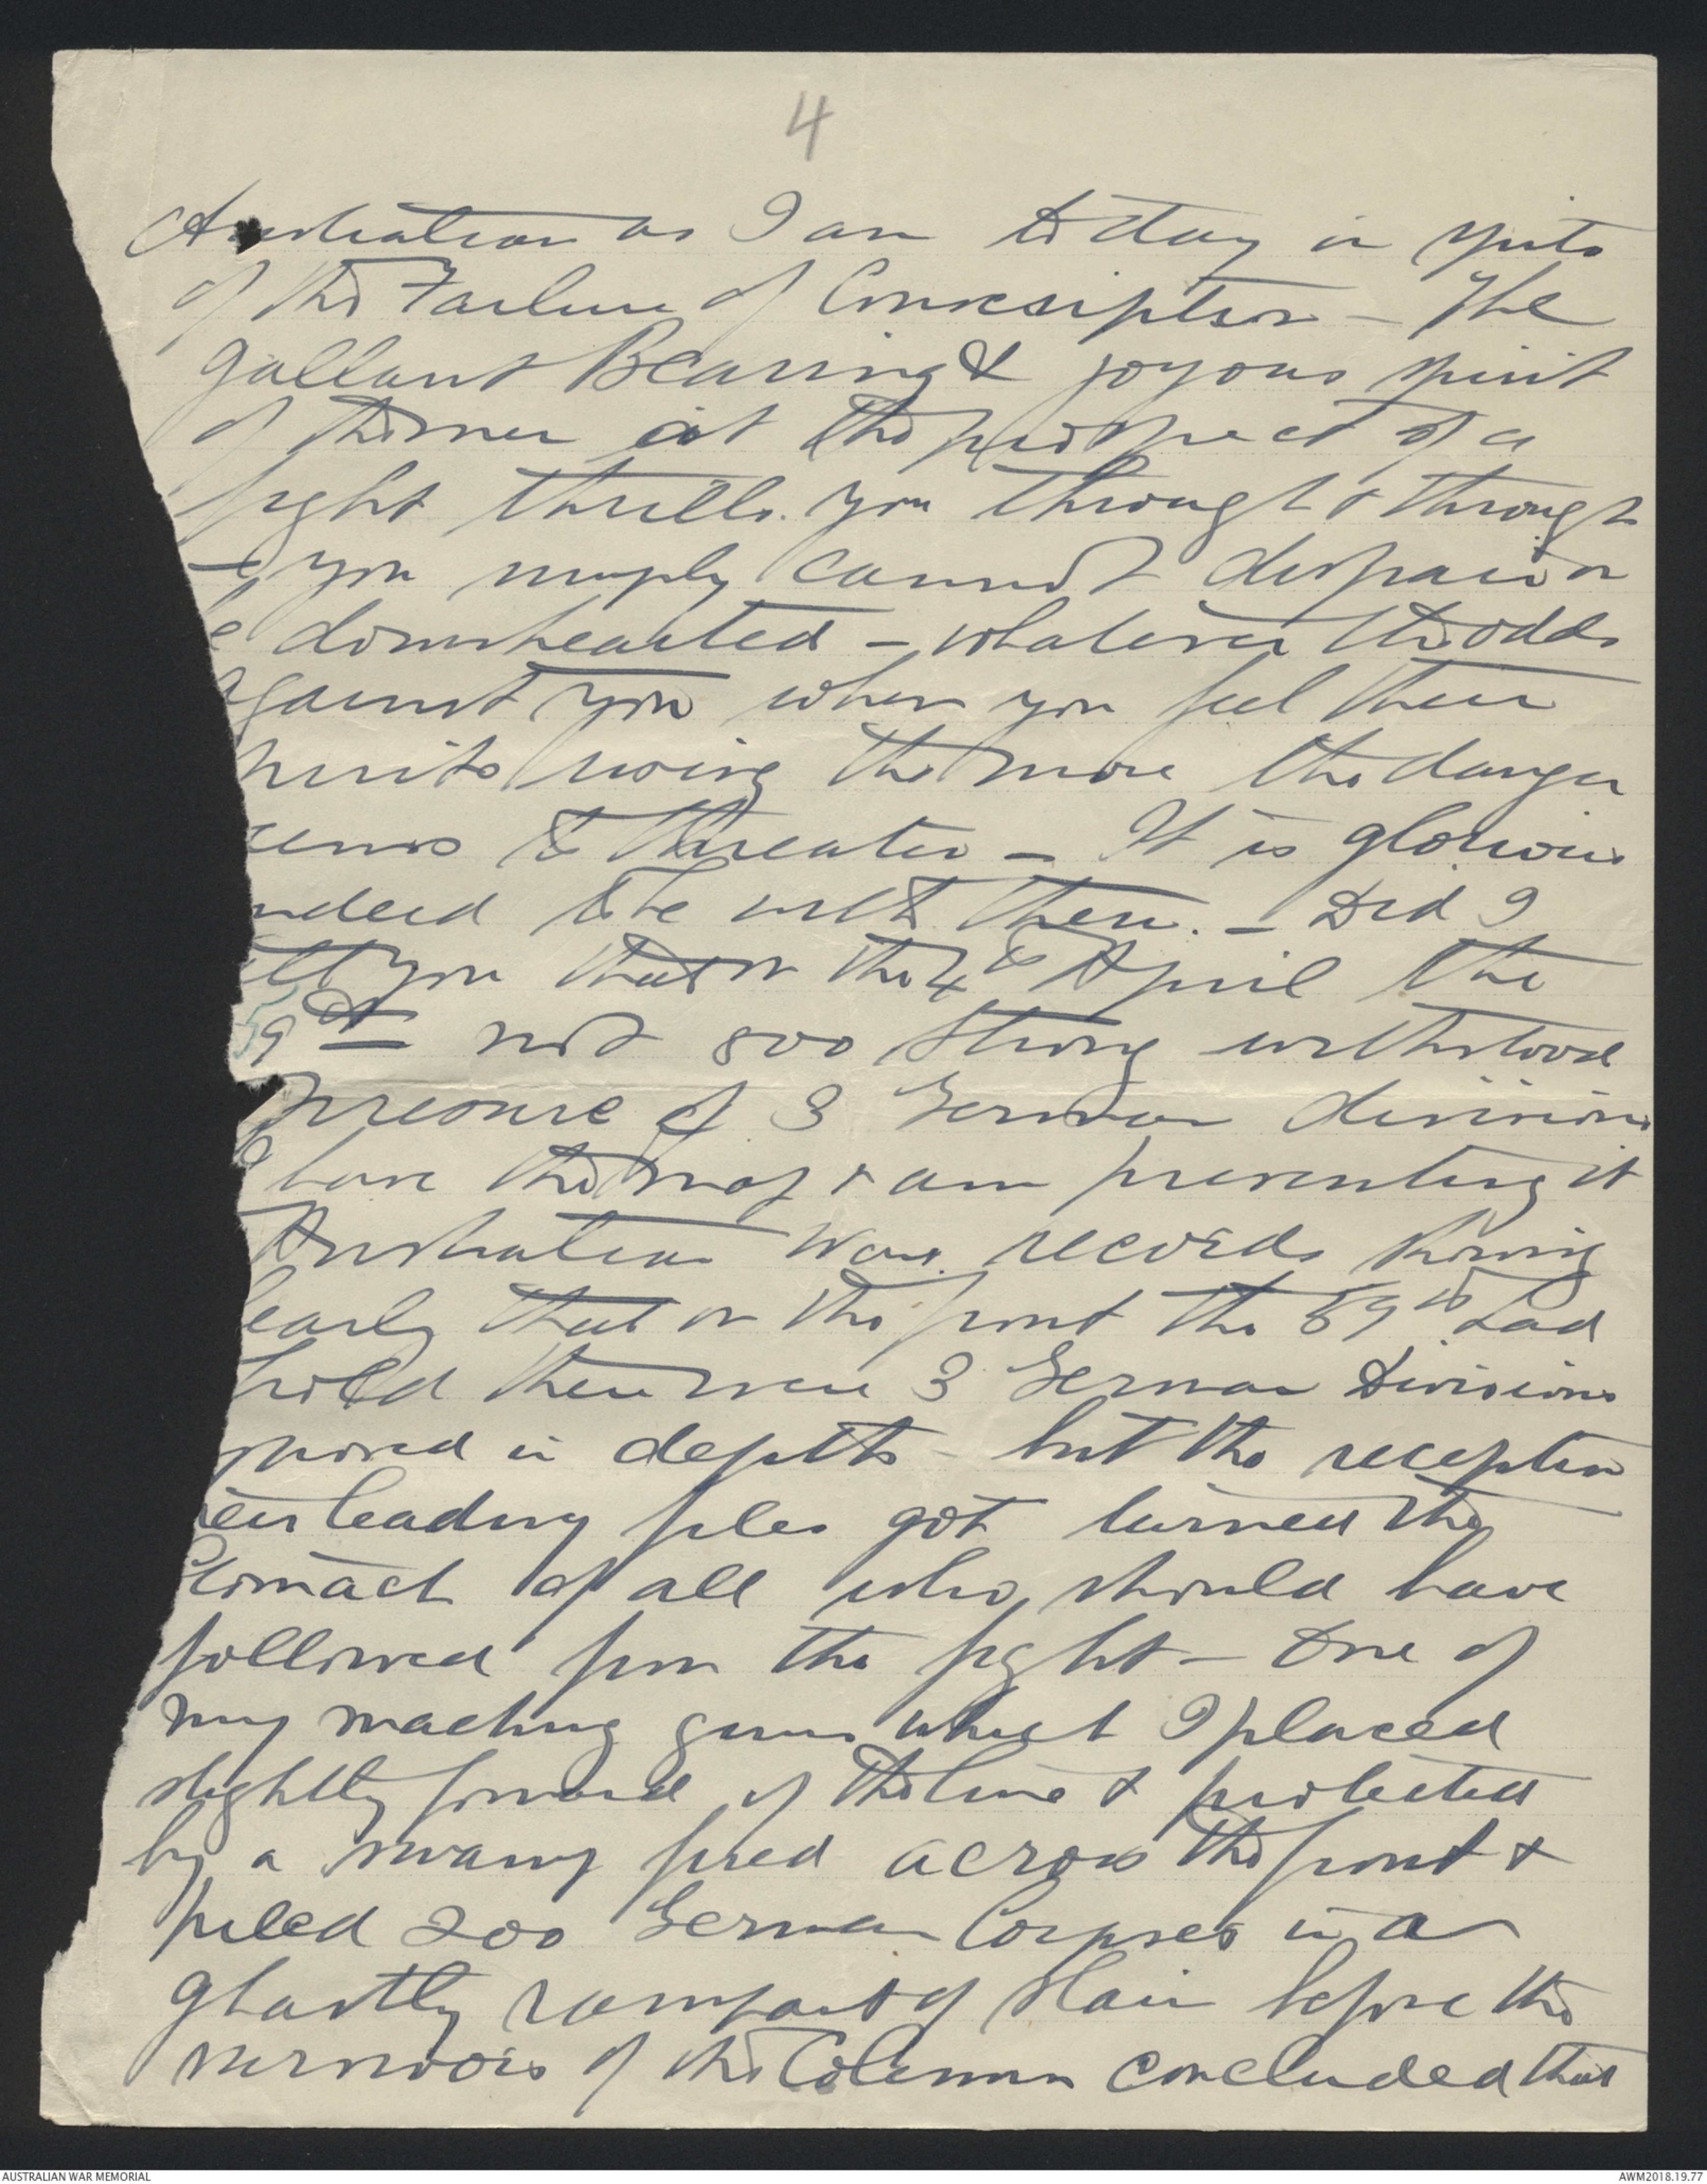 4
Australian as I am today in spite
of the Failure of Conscription - The
gallant Bearing & joyous spirit
of the men at the prospect of a
fight thrills you through & through
- & you simply cannot despair or
e downhearted - whatever the odds
against you when you feel their
spirits rising the more the danger
eems to threaten - It is glorious
ndeed to be with them. - Did I
ell you that on the 4th April the
59th not 800 strong withstood
pressure of 3 German divisions
I have the map & am presenting it
Australian War records showing
learly that on the front the 59th had
hold there were 3 German Divisions
in depth - but the reception
heir leading files got turned the
Stomach of all who should have
followed from the fight - One of
my machine guns which I placed
slightly forward of the line & protected
by a swamp fired across the front &
piled 200 German Corpses in a
ghastly rampart of slain before the
survivors of the Column concluded that
AUSTRALIAN WAR MEMORIAL
AWM2018.19.77